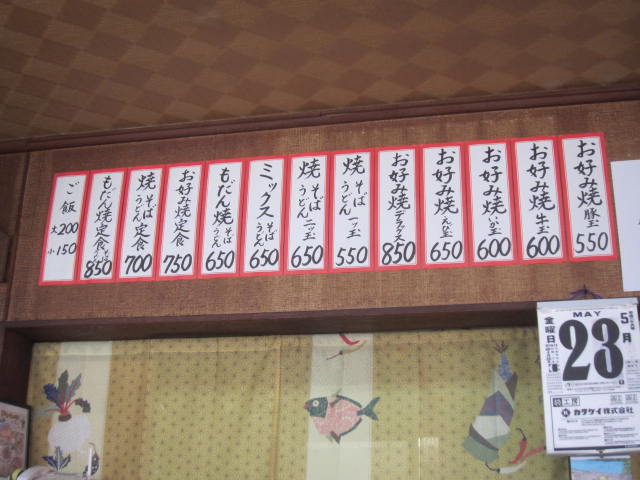 お好み焼 豚玉 550
お好み焼 牛玉 600
お好み焼 いか玉 600
お好み焼 えび玉 650
お好み焼 デラックス 850
焼 そば うどん 一ッ玉 550
焼 そば うどん 二ッ玉 650
ミックス そば うどん 650
もだん焼 そば うどん 650
お好み焼定食 750
焼 そば うどん 定食 700
もだん焼定食 850
ご飯 大200 小150
MAY
5月
金曜日
23
カタケイ株式会社